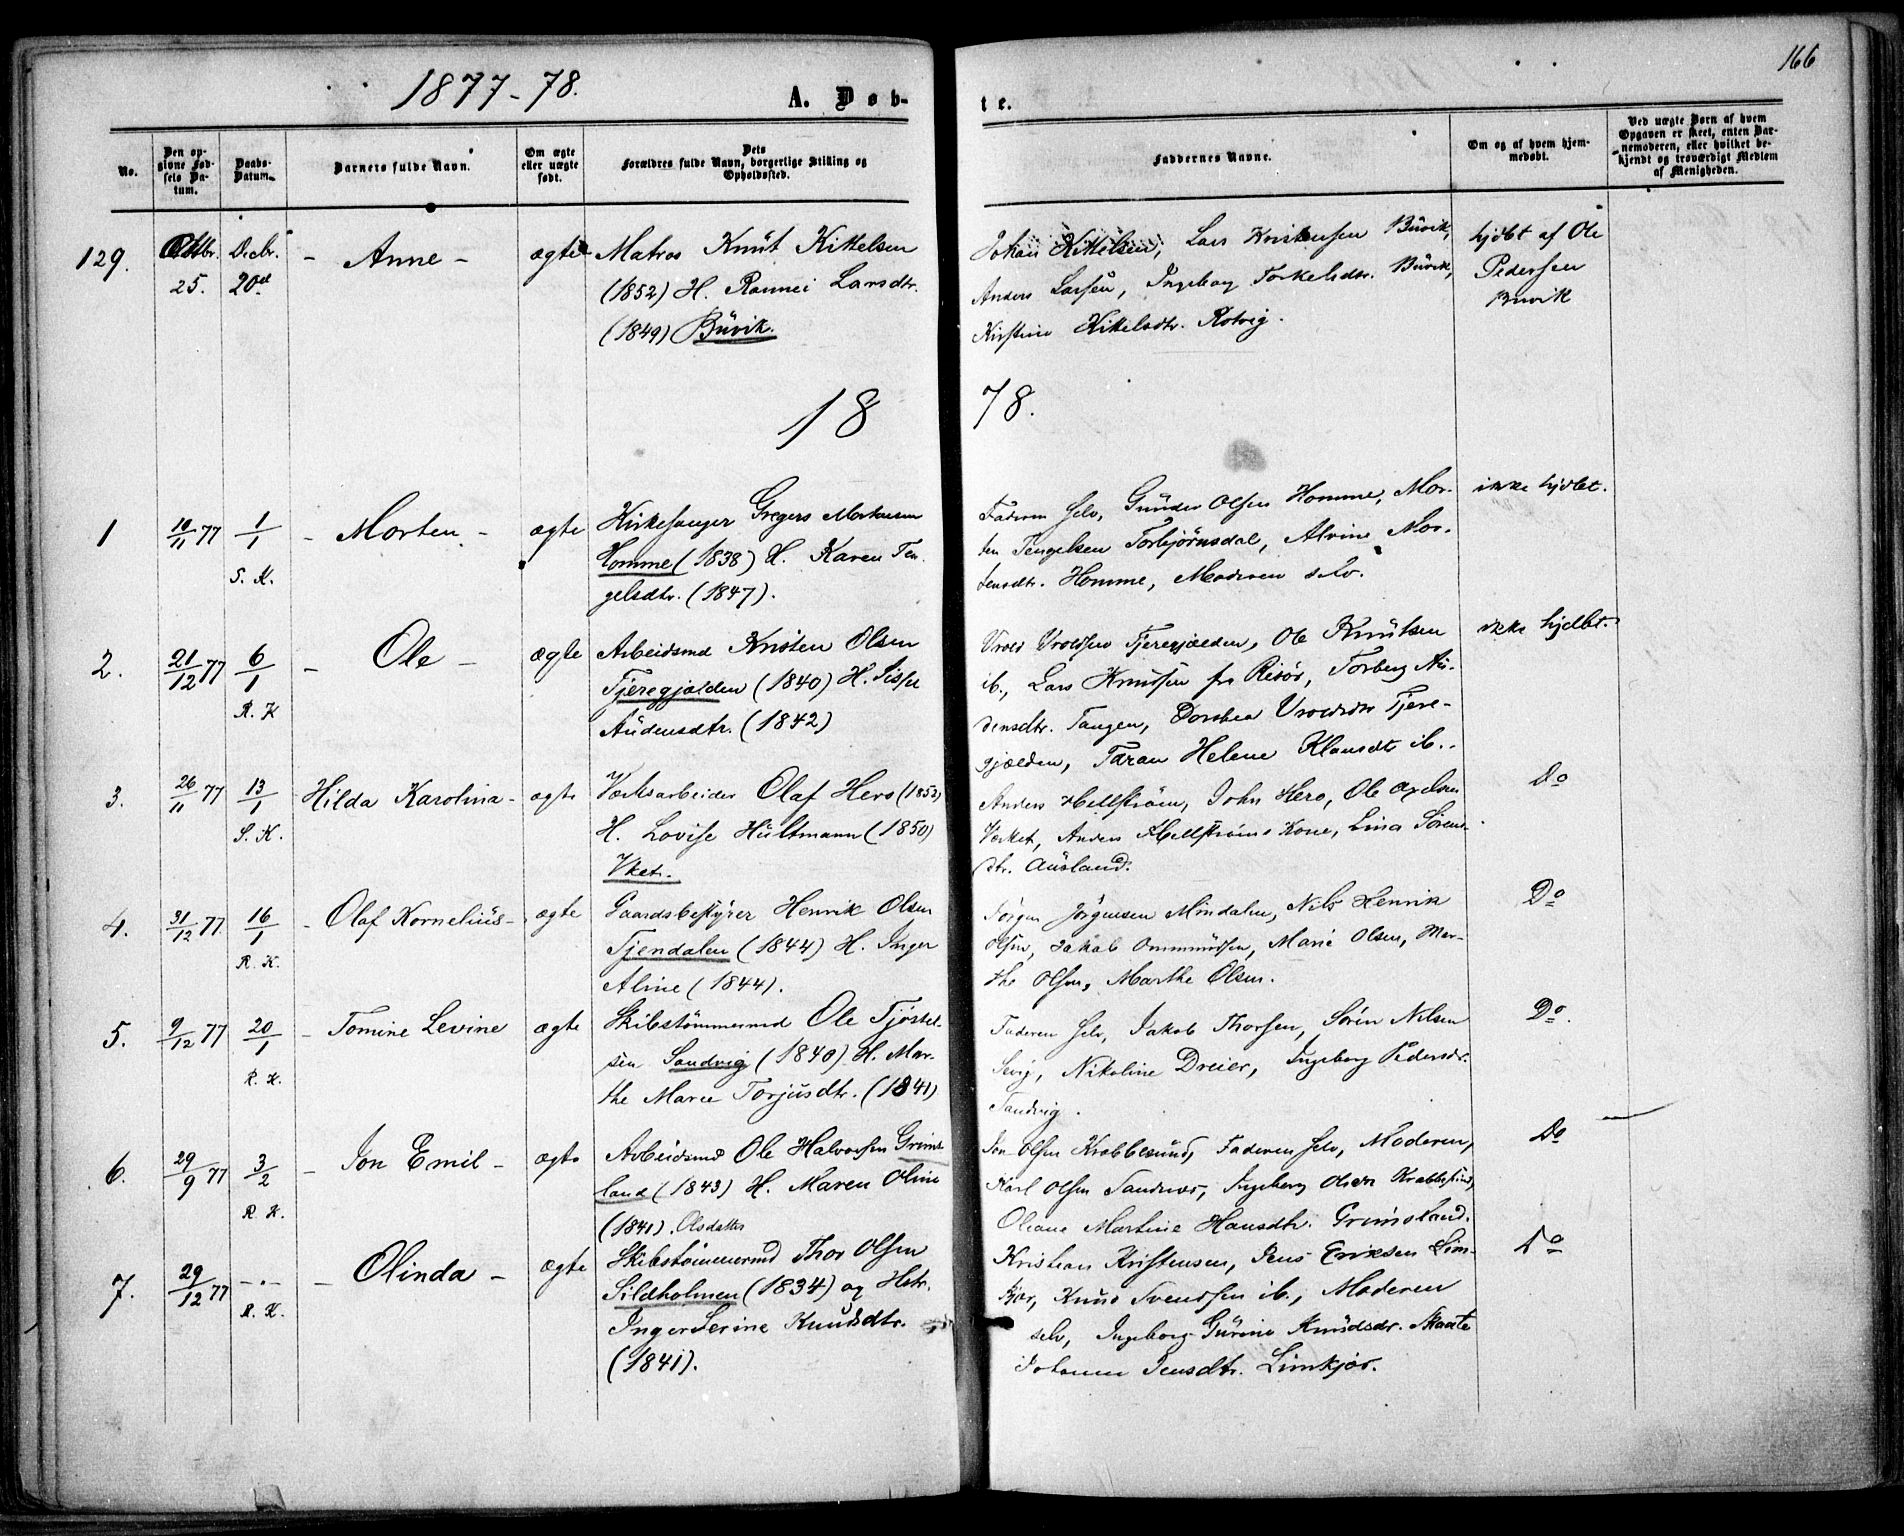 166
1877-78.
A. Døb-
te.
No.
Den op-
givne Fød-
sels Da-
tum.
Daabs-
Datum.
Barnets fulde Navn.
Om ægte
eller uægte
født.
Dets
Forældres fulde Navn, borgerlige Stilling og
Opholdssted.
Faddernes Navne.
Om og af hvem hjem-
medøbt.
Ved uægte Børn af hvem
Opgaven er skeet, enten Bar-
nemoderen, eller hvilket be-
kjendt og troværdigt Medlem
af Menigheden.
129.
Octbr.
25.
Decbr.
20de
- Anne -
ægte
Matros Knut Kittelsen
(1852) H. Rannei Larsdtr.
(1849) Buvik.
Johan Kittelsen, Lars Kristensen Buvik,
Anders Larsen, Ingeborg Torkelsdtr. Buvik,
Kirstine Kittelsdtr. Rotvig.
hjdbt af Ole
Pedersen
Buvik
18
78.
1
10/11 77
1/1
S. K.
- Morten -
ægte
Kirkesanger Gregers Mortensen
Homme (1838) H. Karen Ten-
gelsdtr. (1847).
Faderen selv, Gunder Olsen Homme, Mor-
ten Tengelsen Torbjørnsdal, Alvine Mor-
tensdtr. Homme, Moderen selv.
ikke hjdbt.
2.
21/12 77
6/1
R. K
- Ole -
ægte
Arbeidsmd Kristen Olsen
Tjeregjælden (1840) H. Sisse
Audensdtr. (1842)
Vrold Vroldsen Tjeregjælden, Ole Knutsen
ib., Lars Knutsen fra Risør, Torberg Au-
densdtr. Tangen, Dorthea Vroldsdtr Tjere-
gjælden, Taran Helene Klausdtr ib..
ikke hjdbt.
3.
26/11 77
13/1
S. K.
Hilda Karolina -
ægte
Værksarbeider Olaf Hero (1853)
H. Lovise Hultmann (1850)
Vket.
Anders Hellstrøm, John Hero, Ole Axelsen
Værket, Anders Hellstrøms Kone, Lina Sørens-
dtr. Ausland.
Do
4.
31/12 77
16/1
R. K.
- Olaf Kornelius -
ægte
Gaardsbestyrer Henrik Olsen
Tjendalen (1844) H. Inger
Aline (1844).
Jørgen Jørgensen Mindalen, Nils Henrik
Olsen, Jakob Ommundsen, Marie Olsen, Mar-
the Olsen, Marthe Olsen.
Do
5.
9/12 77
20/1
R. K.
- Tomine Levine
ægte
Skibstømmermd Ole Tjøstel-
sen Sandvig (1840) H. Mar-
the Maree Torjusdtr. (1841)
Faderen selv, Jakob Thorsen, Søren Nilsen
Sevig, Nikoline Dreier, Ingeborg Pedersdr.
Sandvig.
Do.
6.
29/9 77
3/2
R. K.
- Jon Emil -
ægte
Arbeidsmd Ole Halvorsen Grims-
land (1843) H. Maren Oline
(1841). Olsdatter
Jon Olsen Krabbesund, Faderen selv, Moderen,
Karl Olsen Sandnes, Ingeborg Olsen Krabbesund,
Oleane Martine Hansdtr. Grimsland.
Do
7.
29/12 77
-.-
R. K.
- Olinda -
ægte
Skibstømmermd Thor Olsen
Sildholmen (1834) og Hstr.
Inger Serine Knudsdtr.
(1841).
Kristian Kristensen, Jens Eriksen Lim-
kjær, Knud Svendsen ib., Moderen
selv, Ingeborg Gurine Knudsdr. Skaate
Johanne Jensdtr. Limkjør.
Do